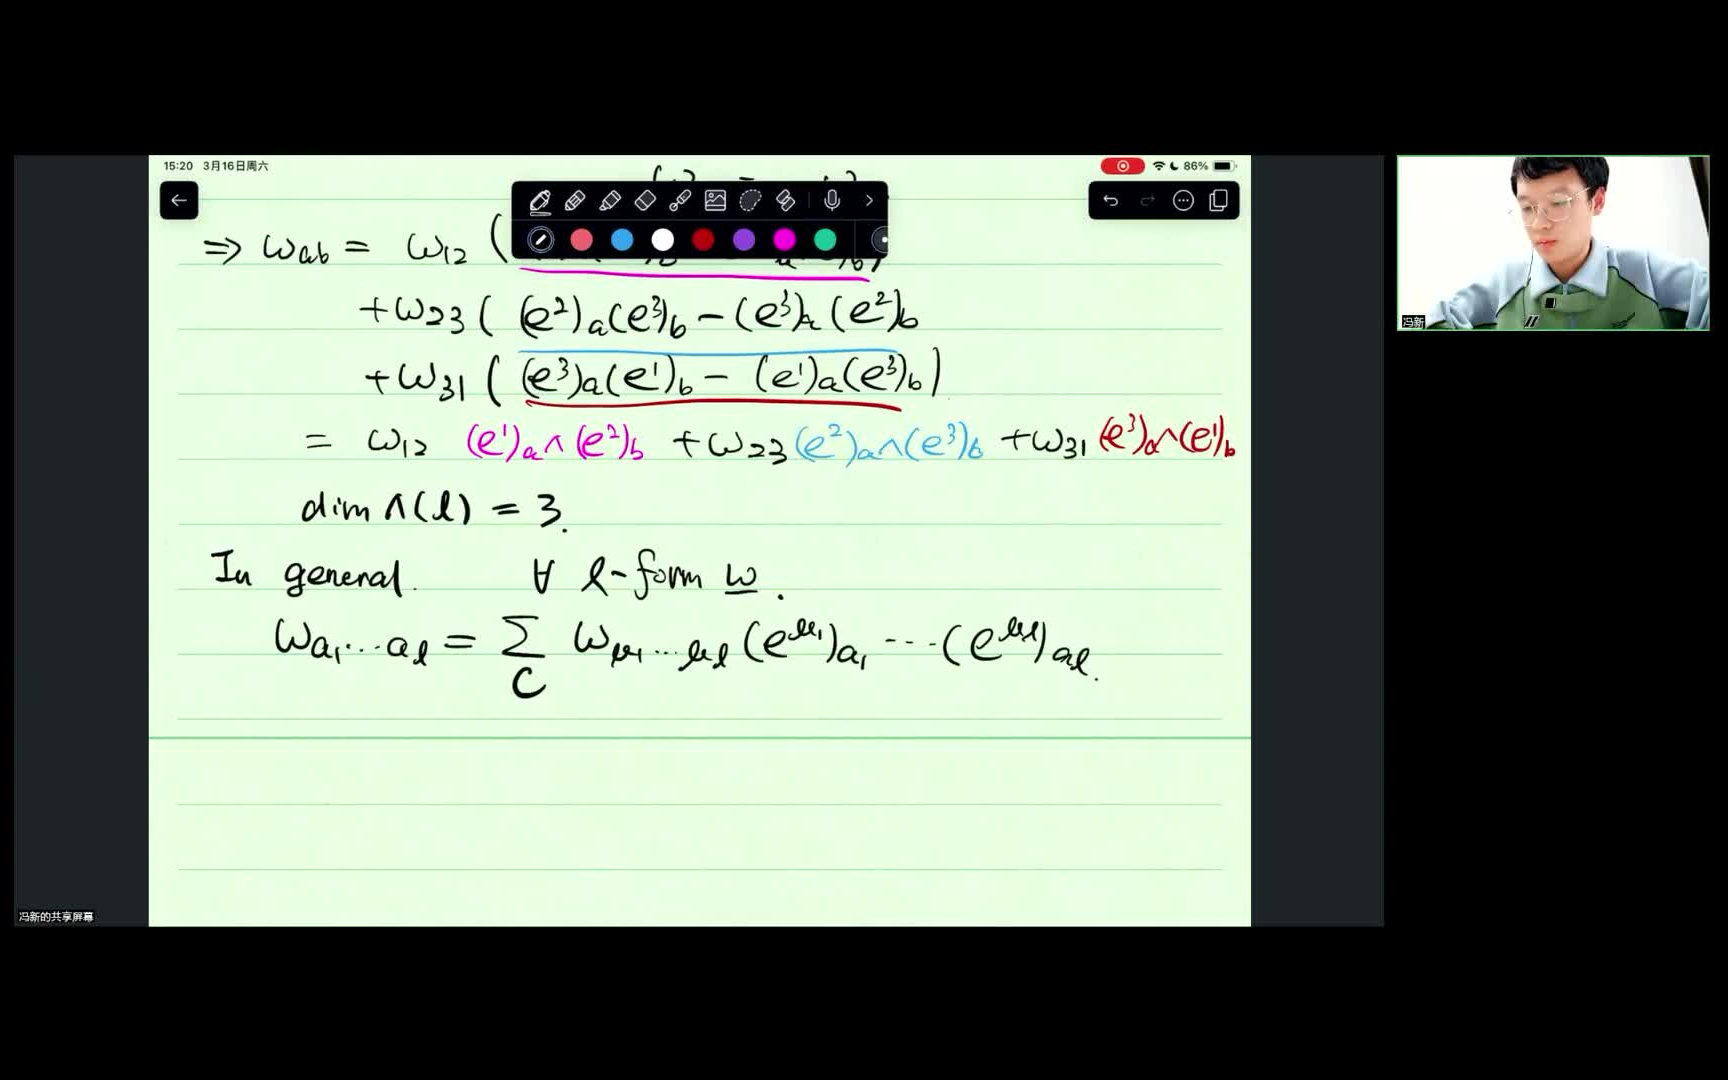 15:20 3月16日周六
86%
⇒ ω_ab = ω_12 (
+ω_23 ( (e^2)_a(e^3)_b − (e^3)_a (e^2)_b
+ω_31 ( (e^3)_a(e^1)_b − (e^1)_a(e^3)_b )
= ω_12 (e^1)_a∧(e^2)_b +ω_23 (e^2)_a∧(e^3)_b +ω_31 (e^3)_a∧(e^1)_b
dim Λ(l) = 3.
In general. ∀ l-form ω.
ω_{a_1...a_l} = Σ_C ω_{μ_1...μ_l} (e^{μ_1})_{a_1} ... (e^{μ_l})_{a_l}.
冯新
冯新的共享屏幕